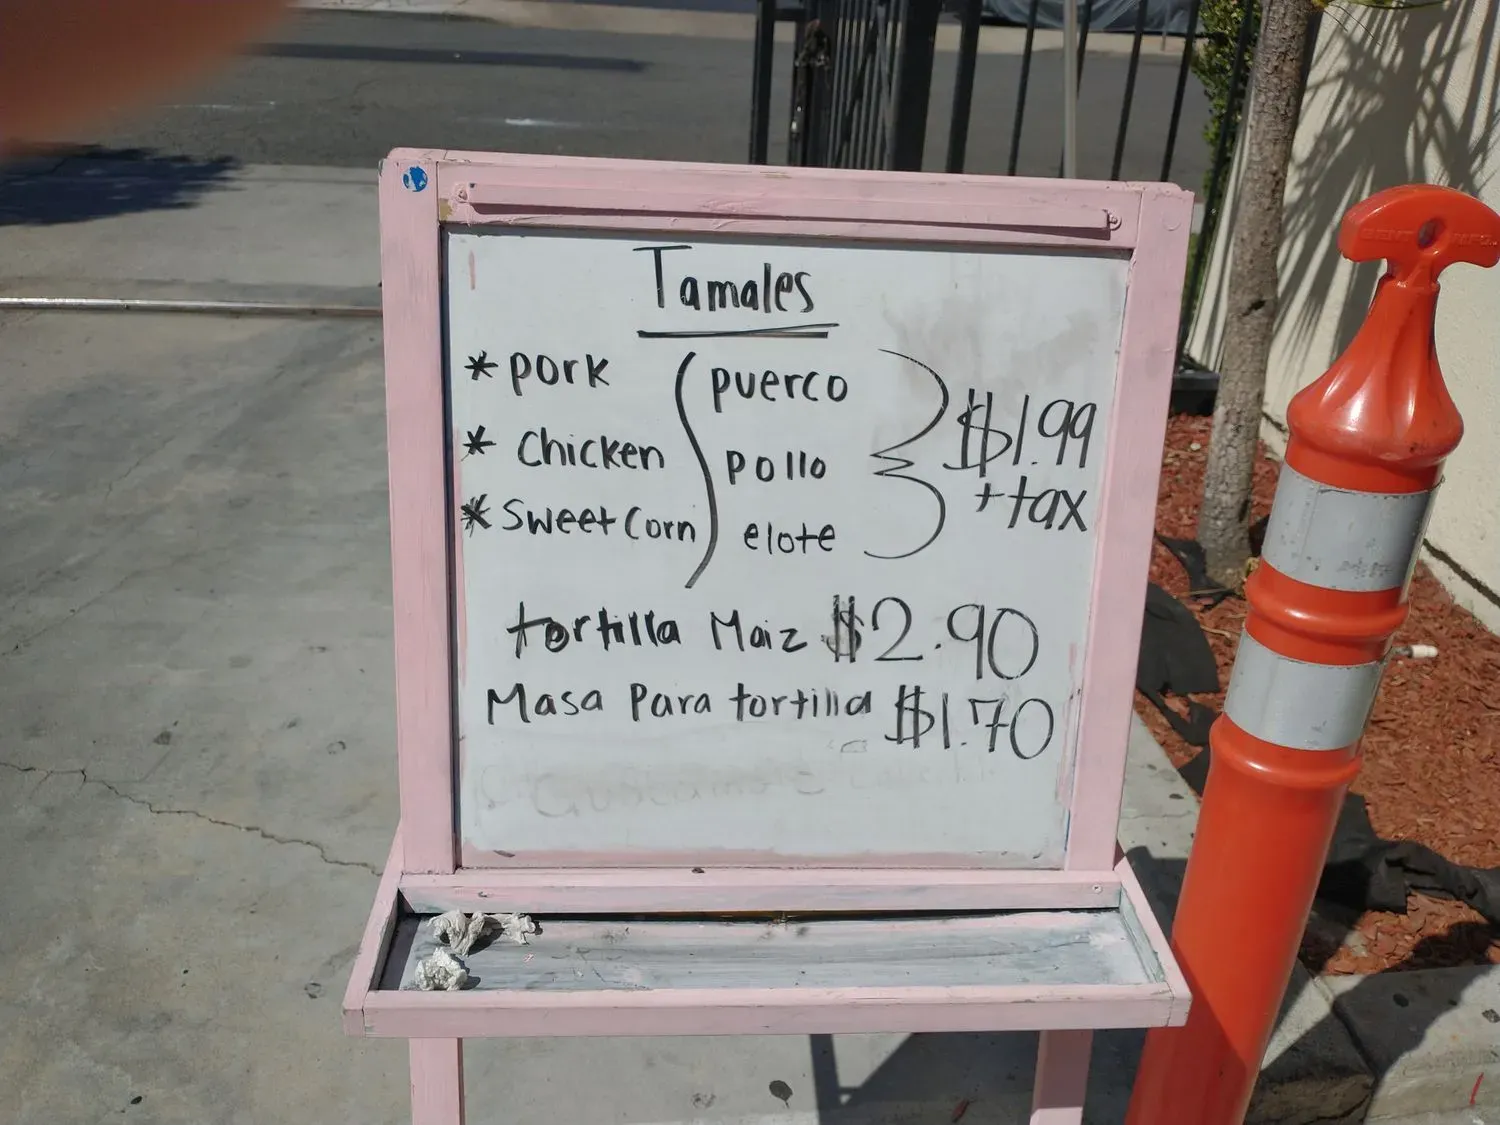 Tamales
* pork puerco
* Chicken pollo $1.99
* Sweet Corn elote + tax
tortilla Maiz $2.90
Masa Para tortilla $1.70